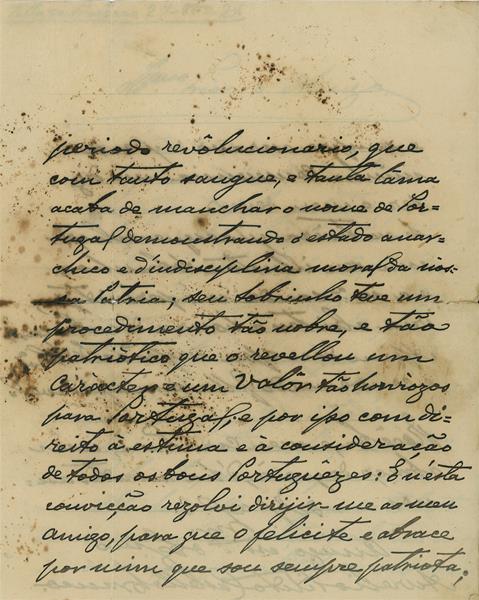 periodo revôlucionario, que
com tanto sangue, e tanta lâma
acaba de manchar o nome de Por=
tugal demonstrando o estado anar=
chico e d'indisciplina moral da nos=
sa Patria; seu sobrinho teve um
procedimento tão nobre, e tão
patriótico que o revellou um
Carácter e um Valôr tão honrozos
para Portugal, e por isso com di=
reito á estima e á consideração
de todos os bons Portuguêzes: E n'ésta
convicção rezolvi dirijir-me ao meu
amigo, para que o felicite e abrace
por mim que sou sempre patriota,